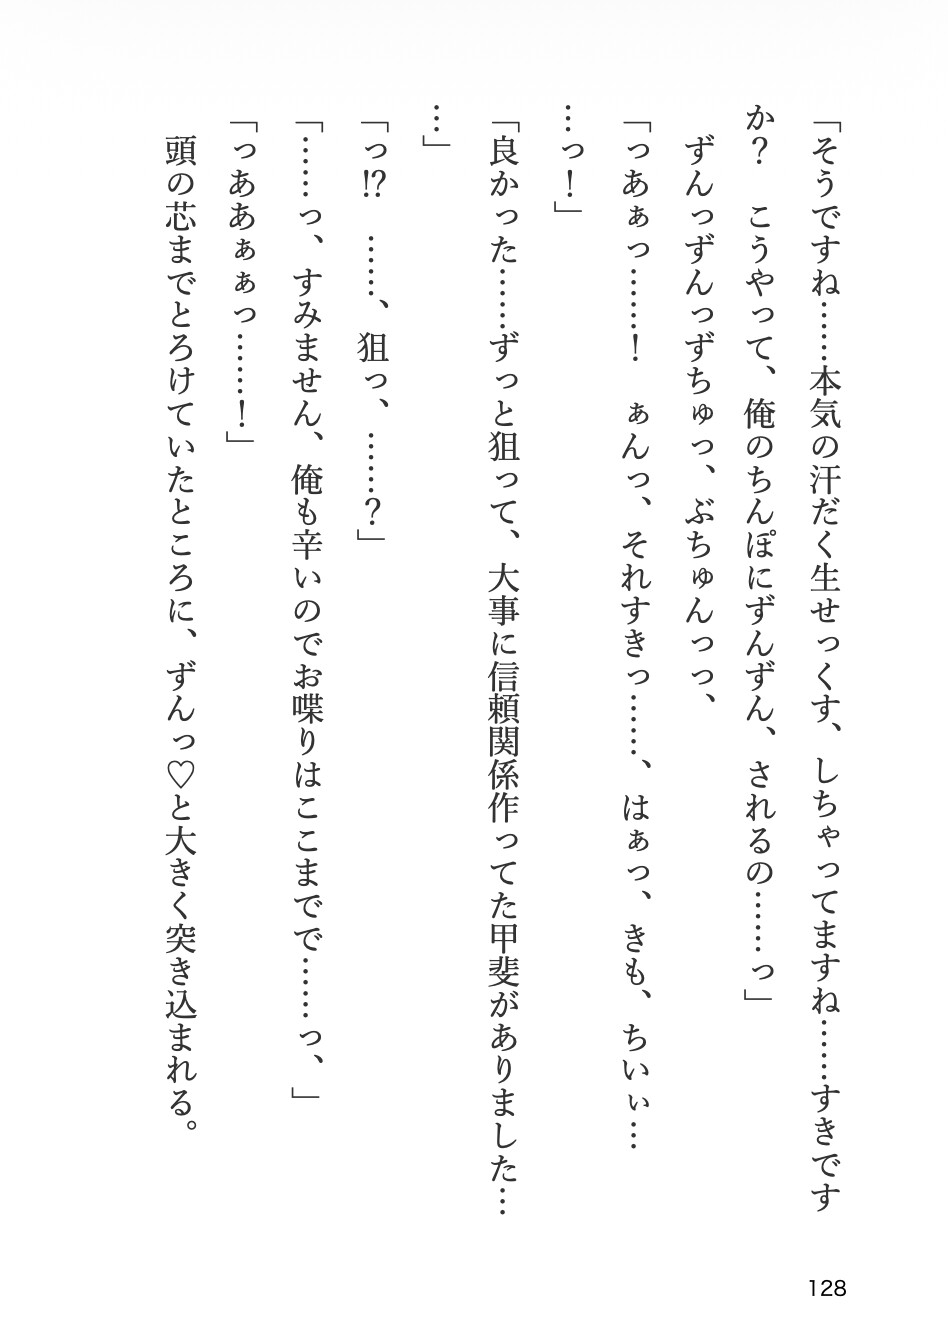 「そうですね……本気の汗だく生せっくす、しちゃってますね……すきです
か？　こうやって、俺のちんぽにずんずん、されるの……っ」
　ずんっずんっずちゅっ、ぶちゅんっっ、
「っあぁっ……！　ぁんっ、それすきっ……、はぁっ、きも、ちいぃ…
…っ！」
「良かった……ずっと狙って、大事に信頼関係作ってた甲斐がありました…
…」
「っ⁉　……、狙っ、……？」
「……っ、すみません、俺も辛いのでお喋りはここまでで……っ、」
「っああぁぁっ……！」
　頭の芯までとろけていたところに、ずんっ♡と大きく突き込まれる。
128